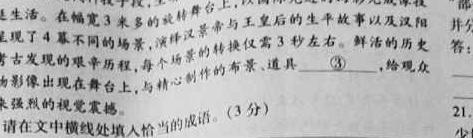 生活。在幅宽3米多的旋转舞台上,
呈现了4幕不同的场景,演绎汉景帝与王皇后的生平故事以及汉阳
考古发现的艰辛历程,每个场景的转换仅需3秒左右。鲜活的历史
物影像出现在舞台上,与精心制作的布景、道具③,给观众
来强烈的视觉震撼。
请在文中横线处填入恰当的成语。(3分)
答:
21